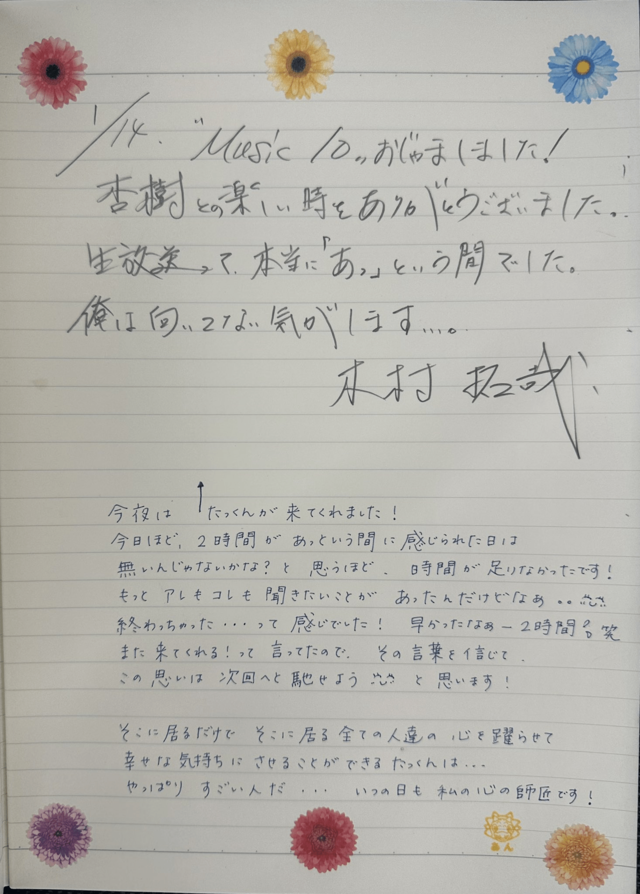 1/14. "Music 10" おじゃましました!
杏樹との楽しい時をありがとうございました。
生放送って、本当に「あっ」という間でした。
俺は向いてない気がします…。
木村 拓哉
今夜は ↑ たっくんが来てくれました!
今日ほど、2時間が あっという間に 感じられた日は
無いんじゃないかな?と 思うほど、時間が 足りなかったです!
もっと アレもコレも 聞きたいことが あったんだけどなぁ・・
終わっちゃった・・・って 感じでした! 早かったなぁー2時間 笑
また来てくれる!って 言ってたので、その言葉を信じて、
この思いは 次回へと 馳せよう と思います!
そこに居るだけで そこに居る全ての人達の 心を躍らせて
幸せな気持ちに させることができる たっくんは・・・
やっぱり すごい人だ・・・ いつの日も 私の心の師匠です!
あん